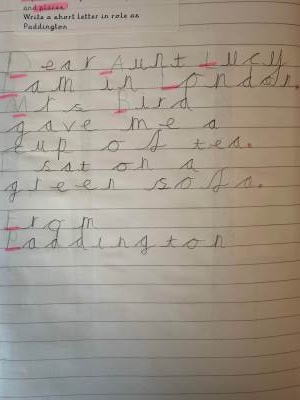 and places
Write a short letter in role as
Paddington
Dear Aunt Lucy
I am in London.
Mrs Bird
gave me a
cup of tea.
I sat on a
green sofa.
From
Paddington